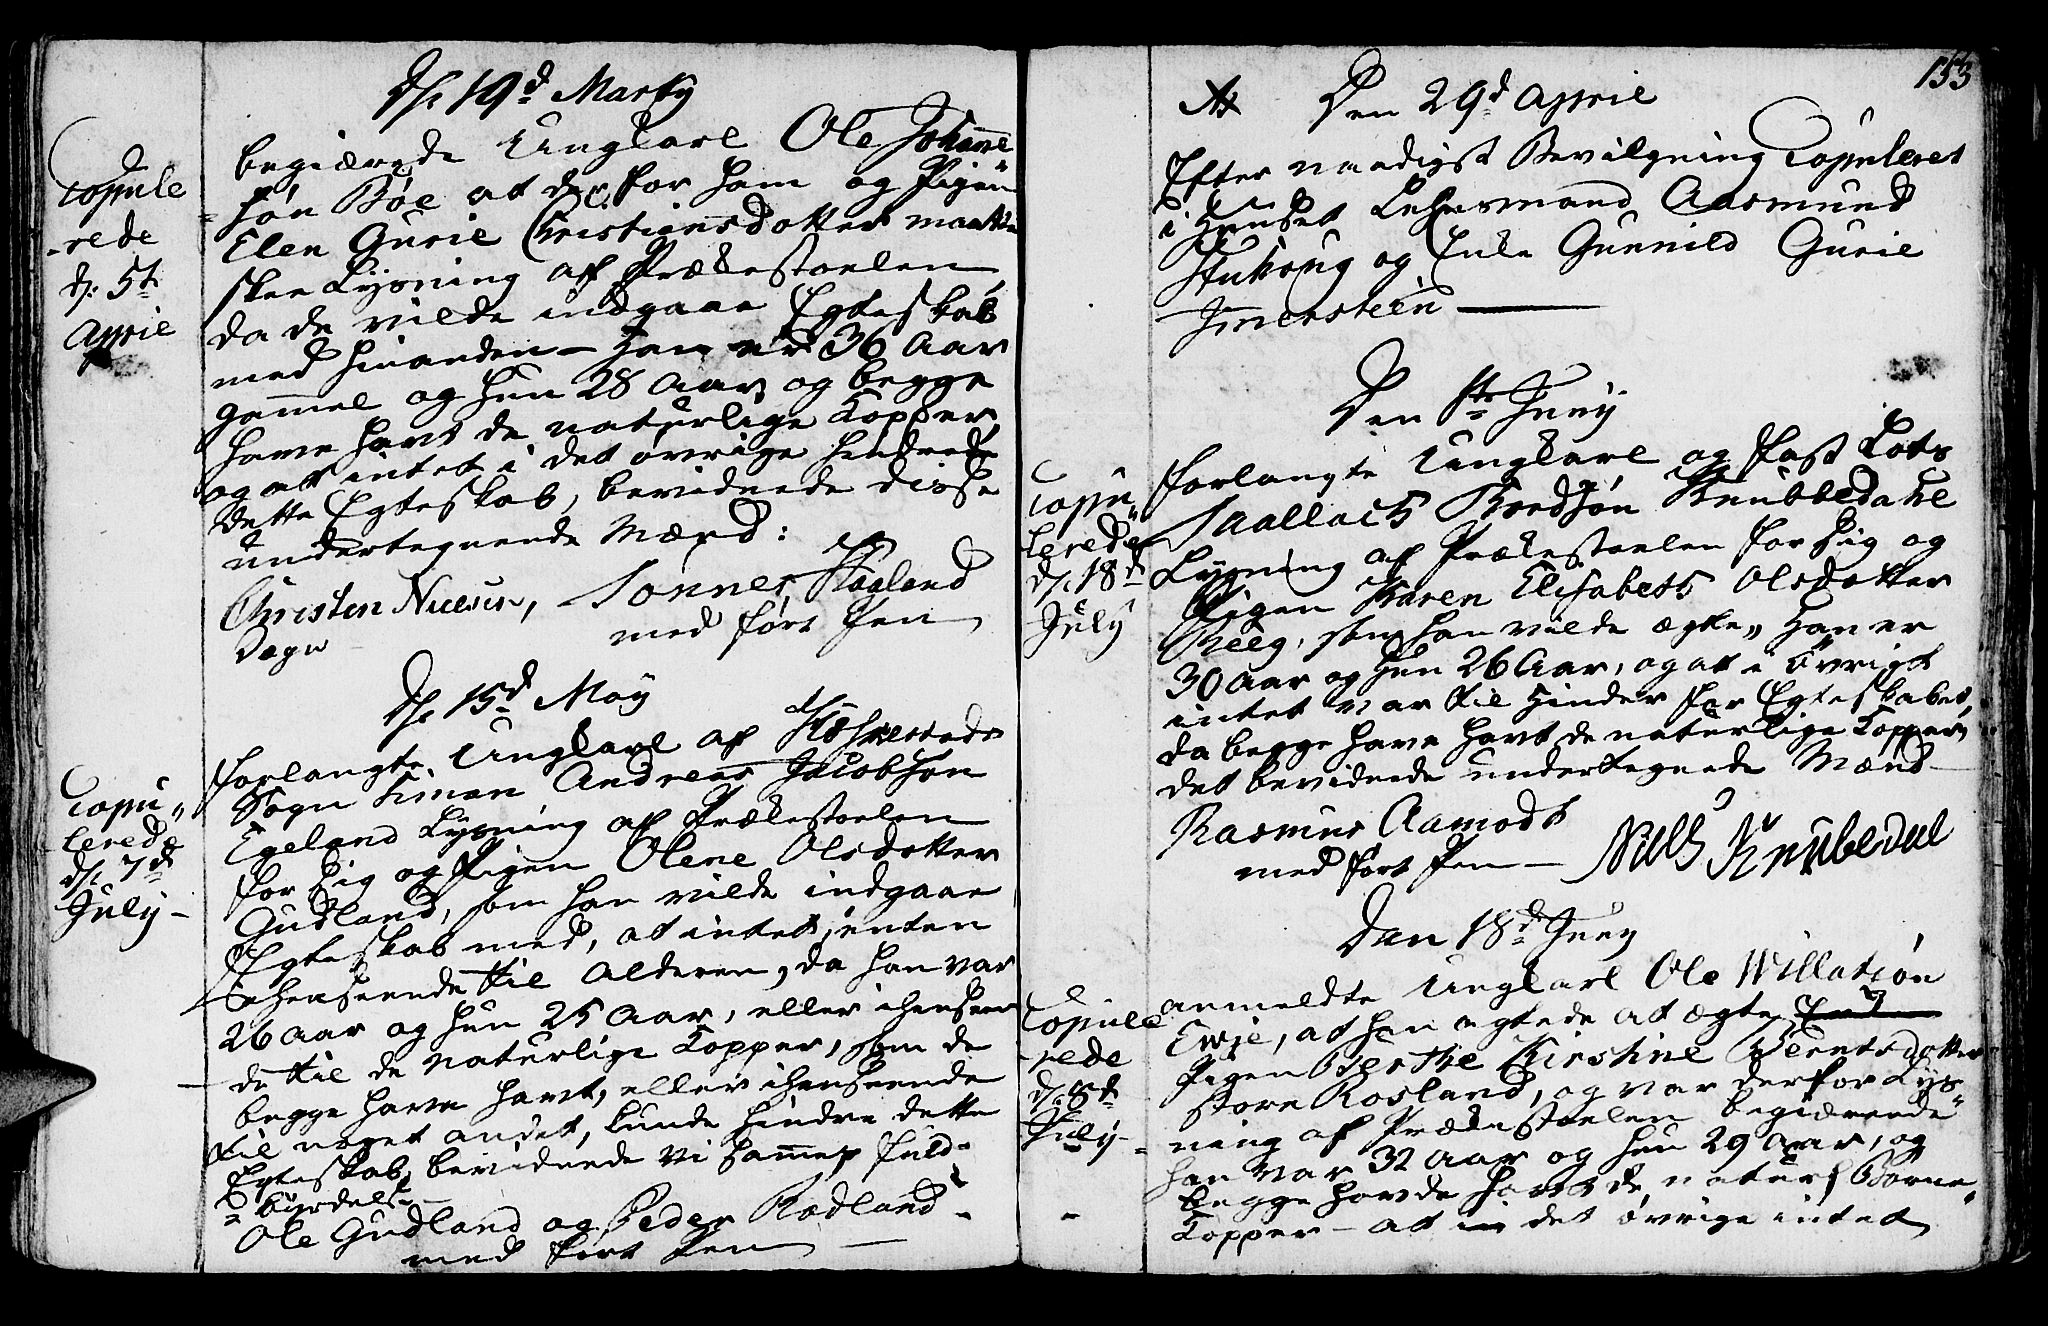 D/: 19d Marty
Copule
-rede
d: 5t
April
begiærede Ungkarl Ole Johanne
søn Bøe at der for ham og Pigen
Elen Gurie Christiansdotter maatte
skee Lysning af Prækestoelen,
da de vilde indgaae Egteskab
med hinanden – Han er 36 Aar
gammel og hun 28 Aar og begge
have havt de naturlige Kopper,
og at intet i det øvrige hindrede
dette Egteskab, bevidnede disse
undertegnende Mænd:
Christen Nielsen, Tonnes Haaland
Degn med ført Pen
D/: 15d May
Copu„
lerede
d/: 7d
July –
forlangte Ungkarl af
Sogn Simon Andreas Jacobsøn
Egeland Lysning af Prækestoelen
for sig og Pigen Olene Olsdotter
Gudland, som han vilde indgaae
Egteskab med, at intet, enten
i henseende til Alderen, da han var
26 Aar og hun 25 Aar, eller i hensee„
de til de naturlige Kopper, som de
begge have havt, eller i henseende
til noget andet, kunde hindre dette
Egteskab, bevidnede vi samme fuld-
byrdelse –
Ole Gudland og Peder Rodland
med ført Pen –
153
Den 29d April
Efter naadigst Bevilgning Copuleret
i Huset Lehnsmand Aasmund
Stuhoug og Enke Gunnild Gurie
Imersteen
Den 1te Juny
Copu„
lerede
d/: 18d
July
forlangte Ungkarl og fast Lots
Saallach Tordsøn Knubbedahl
Lysning af Prækestoelen for sig og
Pigen Karen Elisabeth Olsdotter
Reeg, som han vilde ægte, Han er
30 Aar og hun 26 Aar, og at i øvrigt
intet var til Hinder for Egteskabet,
da begge have havt de naturlige Kopper,
det bevidnede undertegnede Mænd
Rasmus Aamodt
med ført Pen – Niels Knubedal
Den 18d Juny
Copule
rede
d: 8d
July –
anmeldte Ungkarl Ole Willatsøn
Ewje, at han agtede at ægte
Pigen Berthe Kirstine Berntsdotter
store Rosland, og var derfor Lys„
ning af Prækestoelen begiærende
han var 32 Aar og hun 29 Aar, og
begge havde havt de naturl Børne„
Kopper – at i det øvrige intet